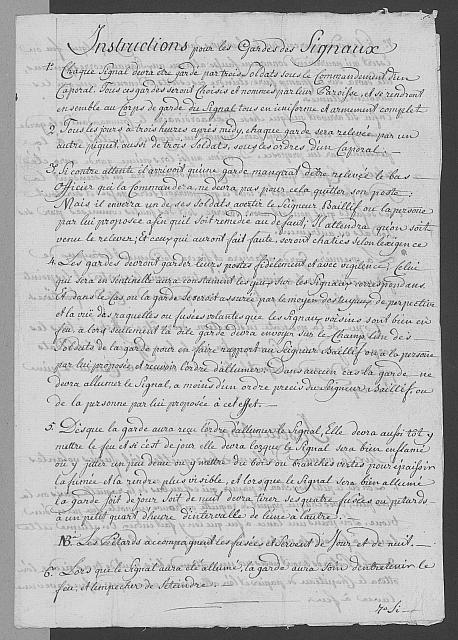 Instructions pour les Gardes des Signaux
1.° Chaque Signal devra être gardé par trois Soldats sous le Commandement d'un
Caporal. Tous ces gardes seront Choisis et nommés par leur Paroisse, et se rendront
ensemble au Corps de garde du Signal tous en uniforme et armument complet.
2. Tous les jours a trois heures aprés midy, chaque garde sera relevée par un
autre piquet aussi de trois Soldats, sous les ordres d'un Caporal.
3. Si contre attente il arrivoit qu'une garde manquat d'être relevée le bas
Officier qui la Commandera, ne devra pas pour cela quitter son poste;
Mais il envera un de ses Soldats avertir le Seigneur Baillif ou la personne
par lui proposée afin qu'il soit remedié au defaut; Il attendra qu'on soit
venu le relever; et ceux qui auront fait faute, seront chatiés selon l'exigence
4. Les gardes devront garder leurs postes fidélement et avec vigilence; Celui
qui sera en Sentinelle aura constament les yeux sur les Signaux correspondans.
Et dans le Cas, ou la garde se seroit assurée par le moyen des tuyaux de perspective
et la vüe des raquettes ou fusées volantes que les Signaux voisins sont bien en
feu, alors seulement la dite garde devra envoyer sur le Champ l'un des
Soldats de la garde pour en faire rapport au Seigneur Baillif ou a la personne
par lui proposée, et recevoir l'ordre d'allumer. Dans aucun cas la garde ne
devra allumer le Signal, a moins d'un ordre precis du Seigneur Baillif ou
de la personne par lui proposée à cet effet.
5. Dès que la garde aura reçu l'ordre d'allumer le Signal, Elle devra aussitôt y
mettre le feu et si c'est de jour elle devra lorsque le Signal sera bien enflamé
ou y jetter un peu d'eau ou y mettre du bois ou branches vertes pour epaissir
la fumée et la rendre plus visible, et lorsque le Signal sera bien allumé
la Garde soit de jour soit de nuit devra tirer ses quatre fusées ou pétards
à un petit quart d'heure d'intervalle de l'une a l'autre.
NB. Les Pétards accompagnent les fusées et servent de Jour et de nuit.
6. Lors que le Signal aura eté allumé, la garde aura soin d'entretenir le
feu, et empecher de s'éteindre.
7.° Si